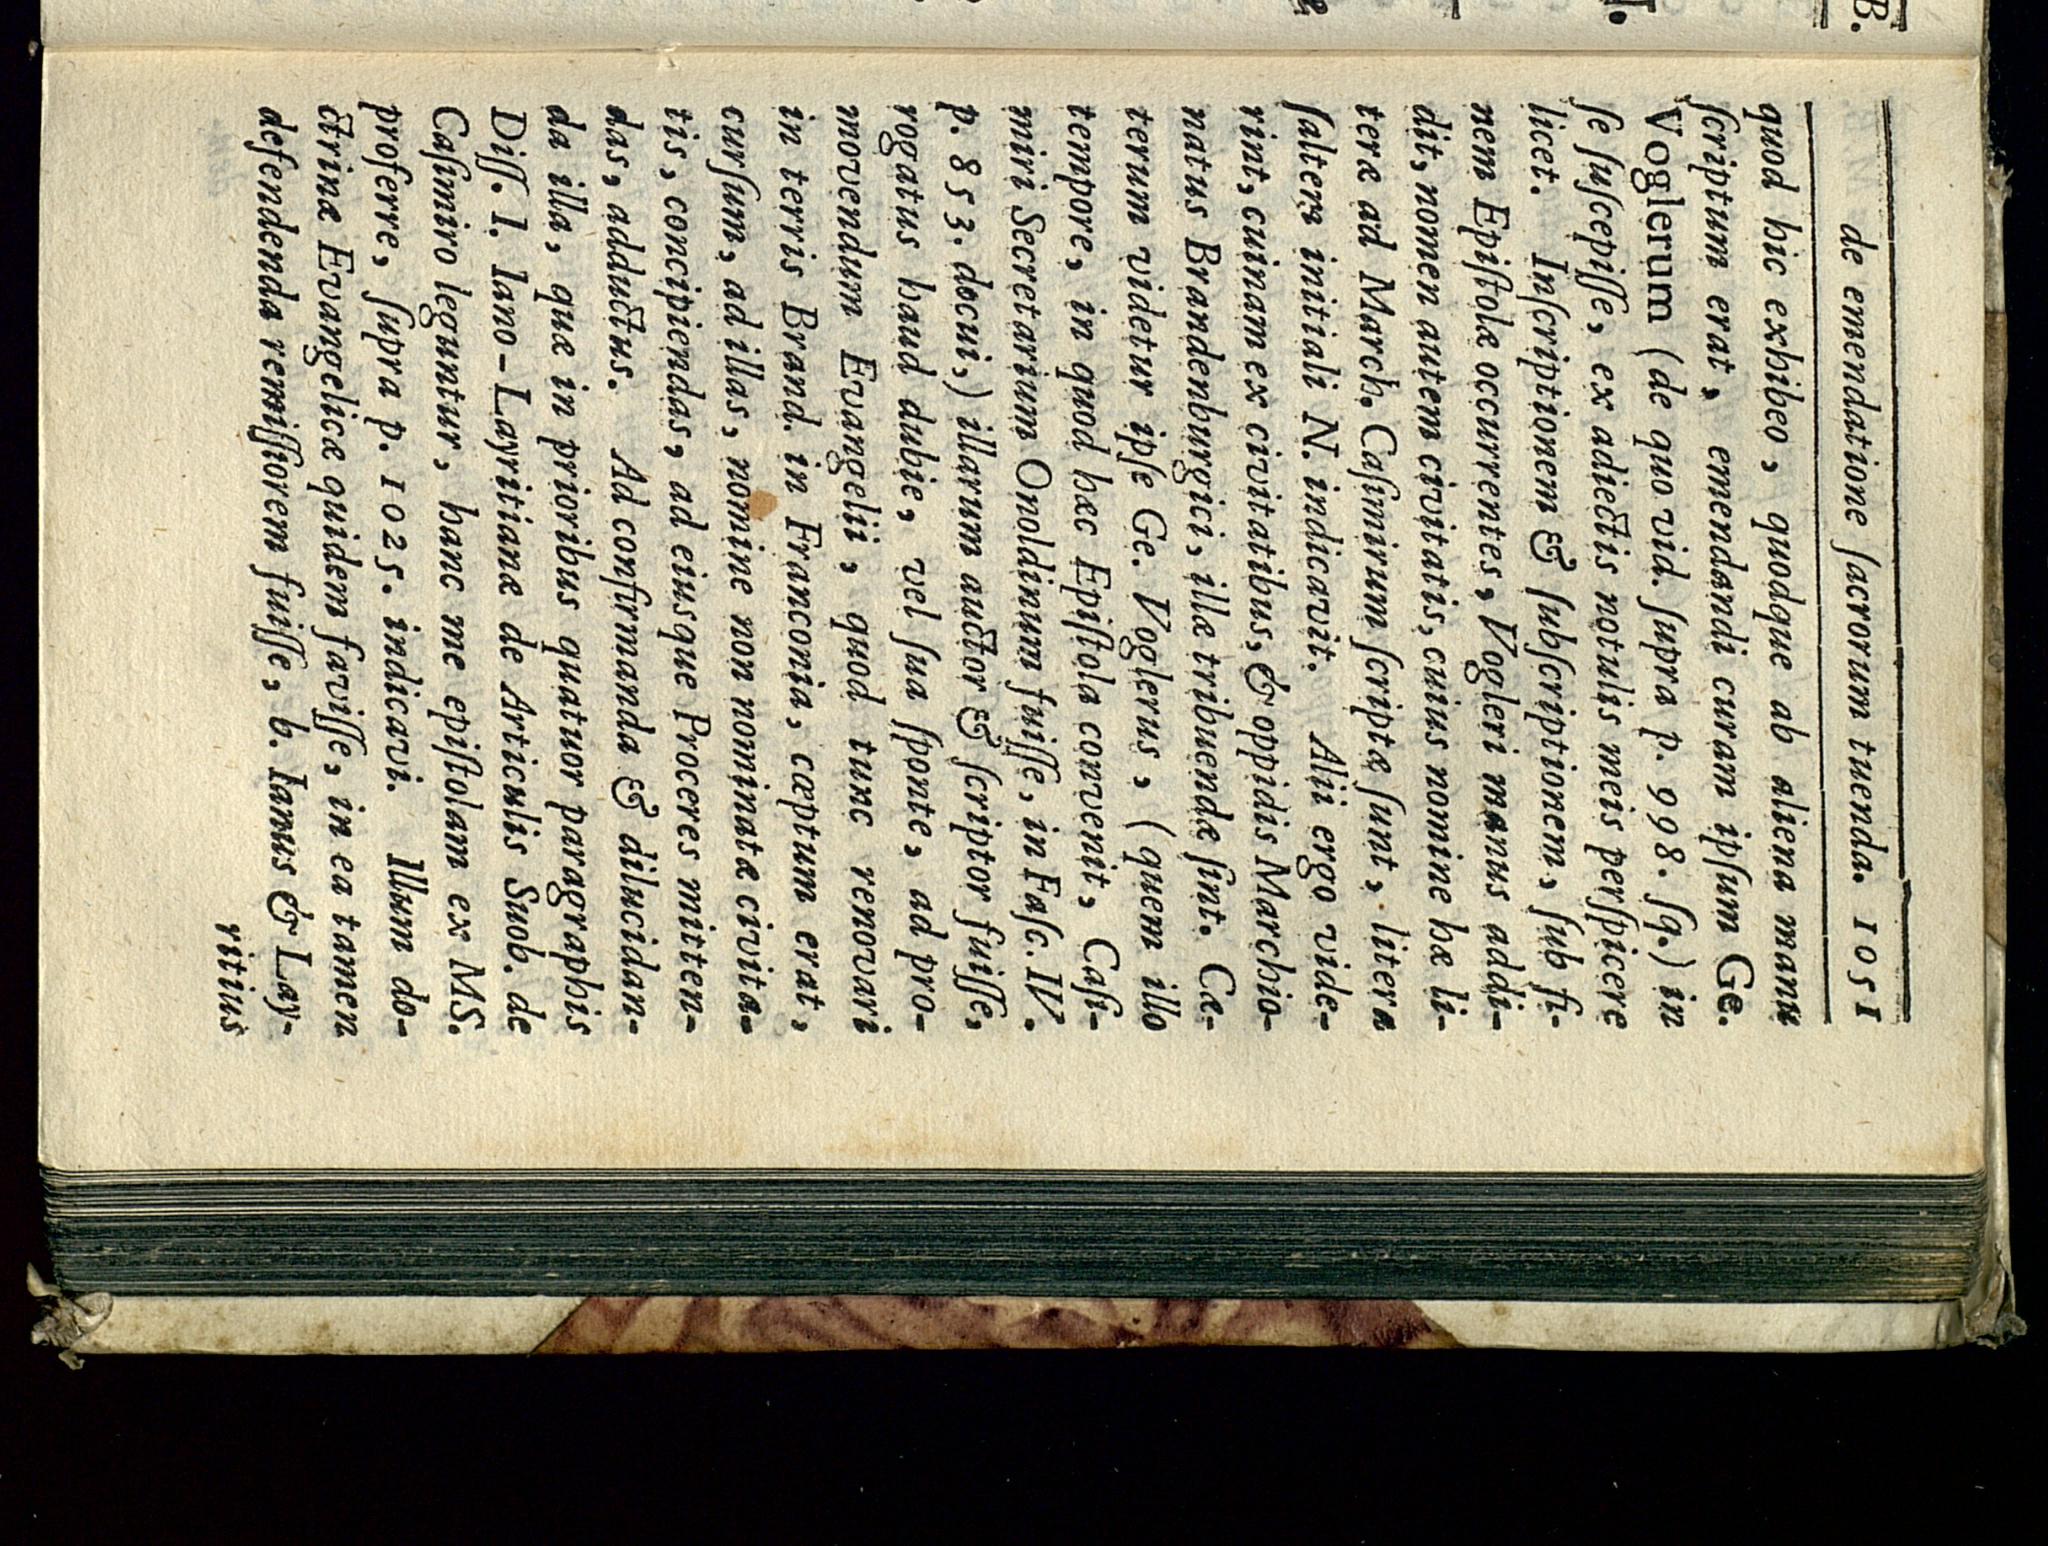 de emendatione ſacrorum tuenda. 1051
quod hic exhibeo, quodque ab aliena manu
ſcriptum erat, emendandi curam ipſum Ge.
Voglerum (de quo vid. ſupra p. 998. ſq.) in
ſe ſuſcepiſſe, ex adiectis notulis meis perſpicere
licet. Inſcriptionem & ſubſcriptionem, ſub fi-
nem Epiſtolæ occurrentes, Vogleri manus addi-
dit, nomen autem civitatis, cuius nomine hæ li-
teræ ad March. Caſimirum ſcriptæ ſunt, litera
ſaltem initiali N. indicavit. Alii ergo vide-
rint, cuinam ex civitatibus, & oppidis Marchio-
natus Brandenburgici, illæ tribuendæ ſint. Cæ-
terum videtur ipſe Ge. Voglerus, (quem illo
tempore, in quod hæc Epiſtola convenit, Caſi-
miri Secretarium Onoldinum fuiſſe, in Faſc. IV.
p. 853. docui,) illarum auctor & ſcriptor fuiſſe,
rogatus haud dubie, vel ſua ſponte, ad pro-
movendum Evangelii, quod tunc renovari
in terris Brand. in Franconia, cœptum erat,
curſum, ad illas, nomine non nominatæ civita-
tis, concipiendas, ad eiusque Proceres mitten-
das, adductus. Ad confirmanda & dilucidan-
da illa, quæ in prioribus quatuor paragraphis
Diſſ. I. Iano-Layritianæ de Articulis Suob. de
Caſimiro leguntur, hanc me epiſtolam ex MS.
proferre, ſupra p. 1025. indicavi. Illum do-
ctrinæ Evangelicæ quidem faviſſe, in ea tamen
defendenda remiſſiorem fuiſſe, b. Ianus & Lay-
ritius